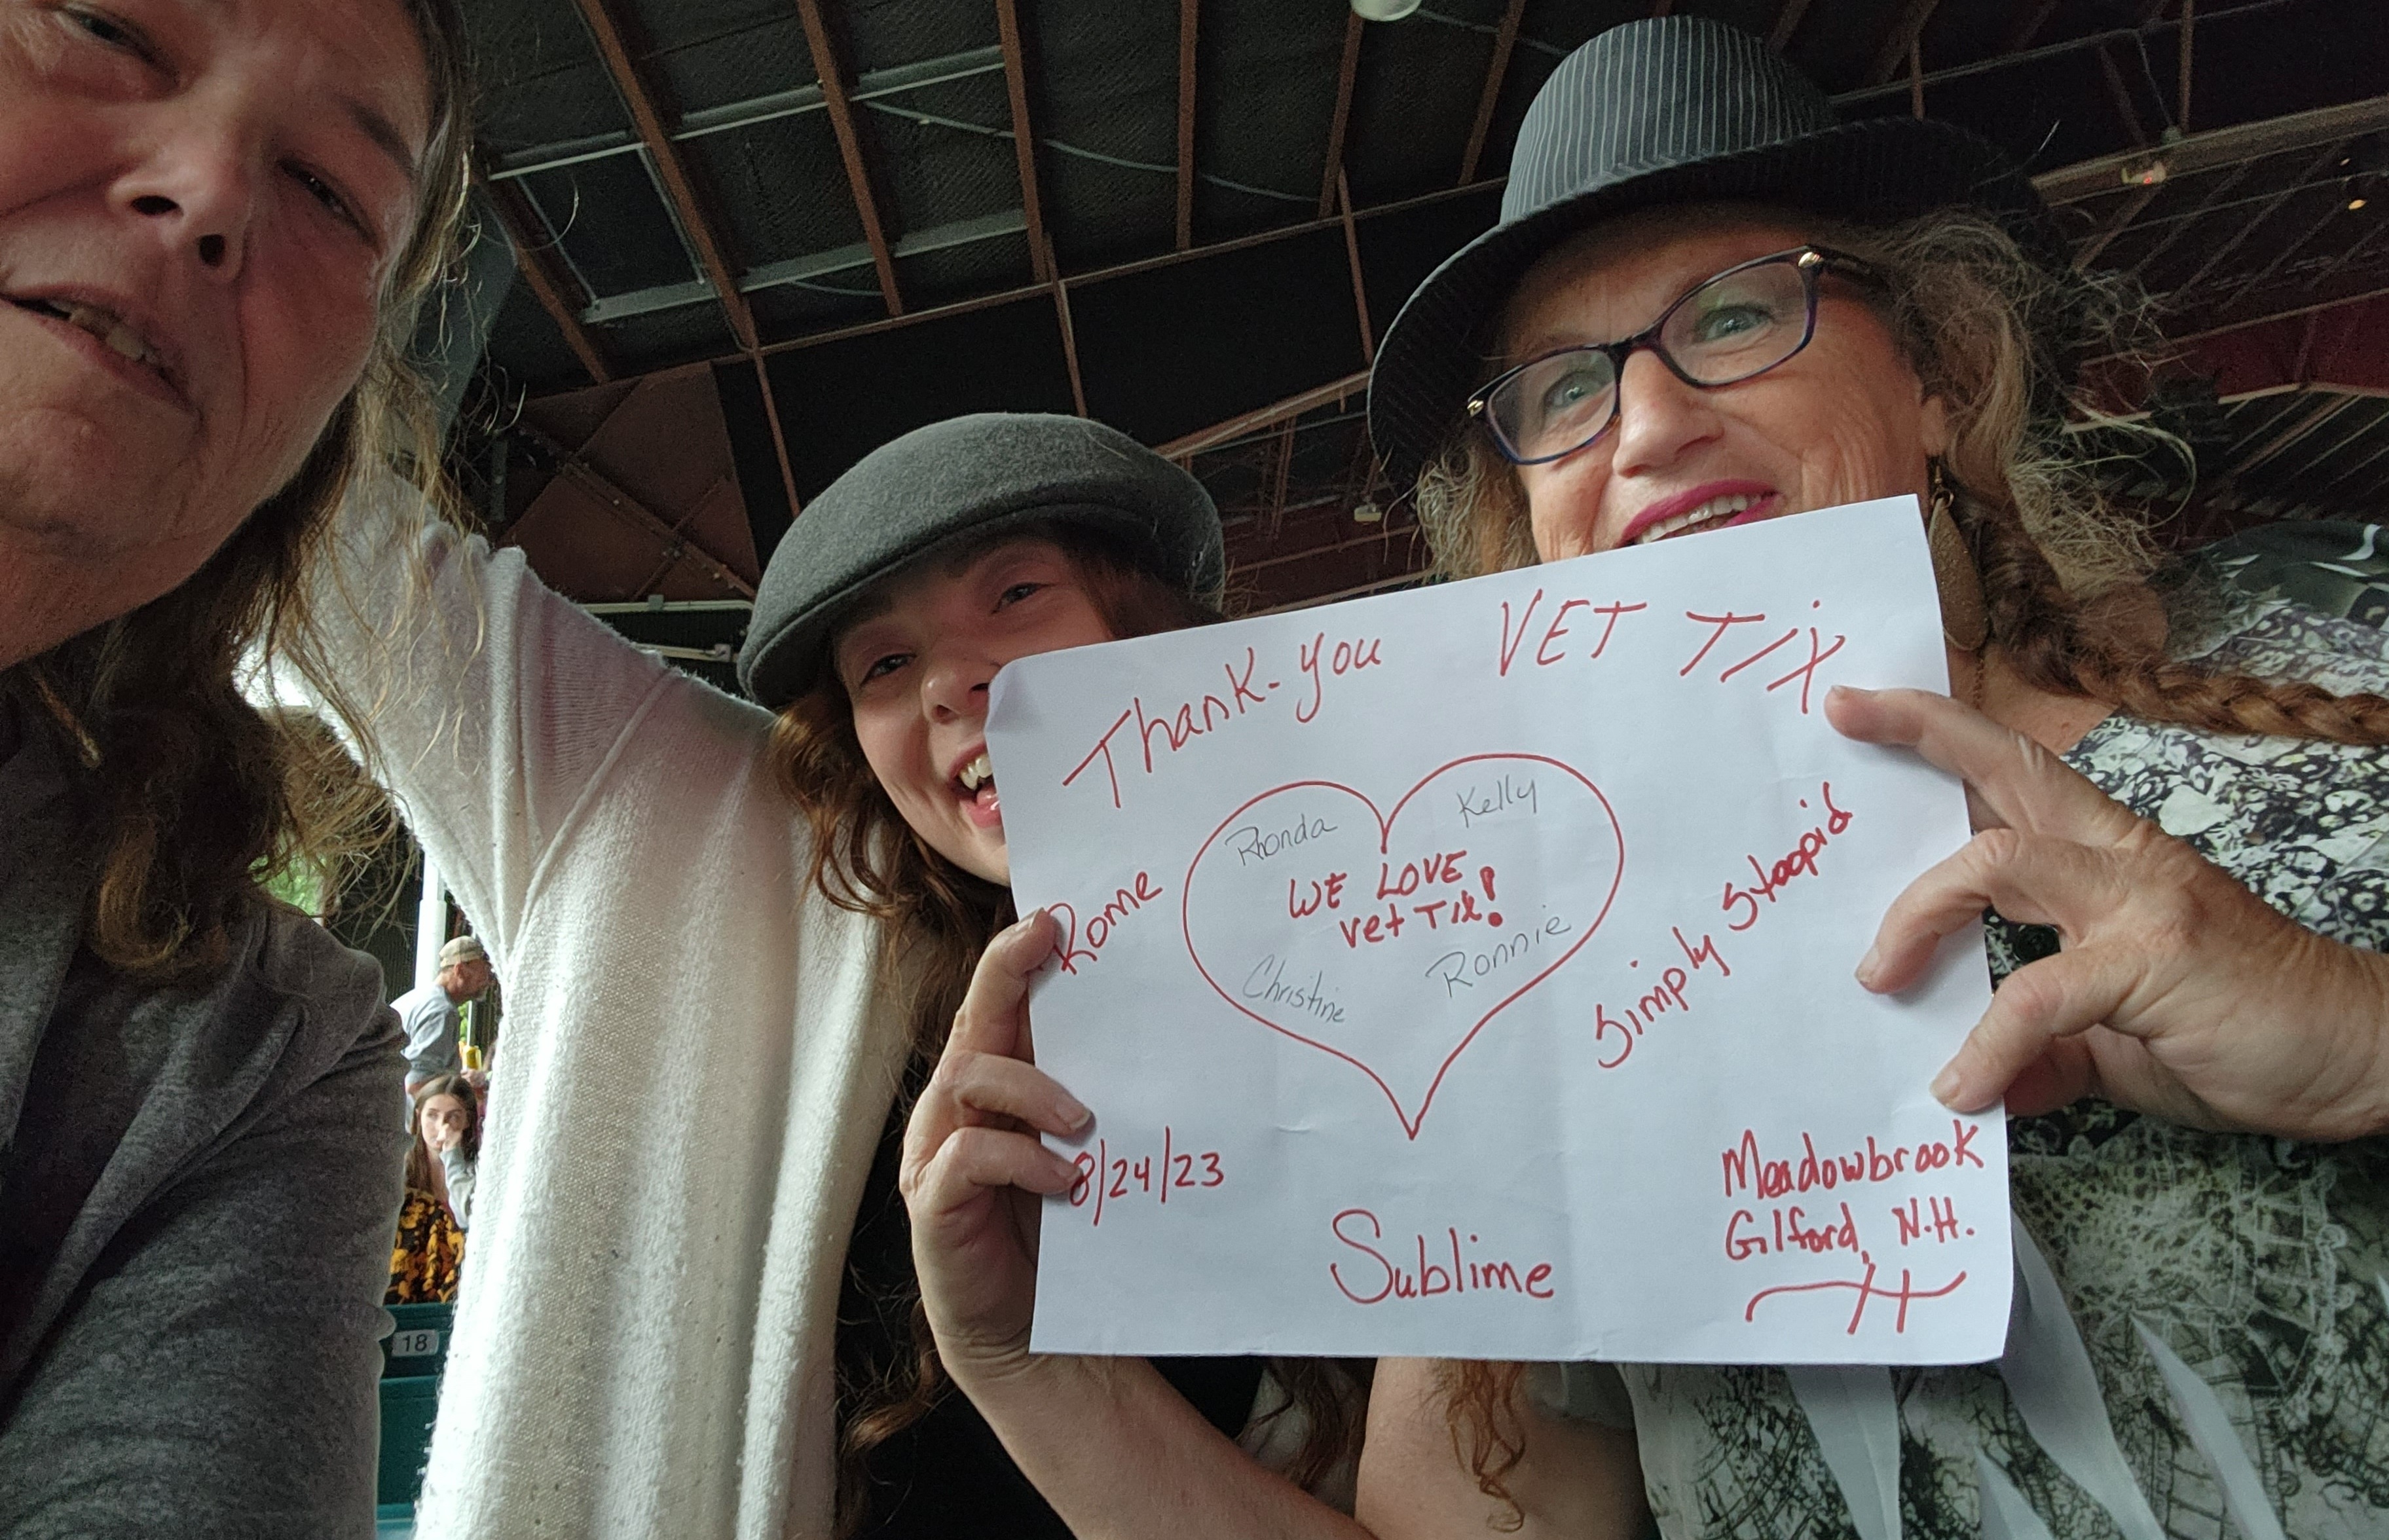 Thank-you VET TIX
Rhonda
Kelly
WE LOVE
Vet TIX!
Christine
Ronnie
Rome
Simply Stoopid
8/24/23
Sublime
Meadowbrook
Gilford, N.H.
18